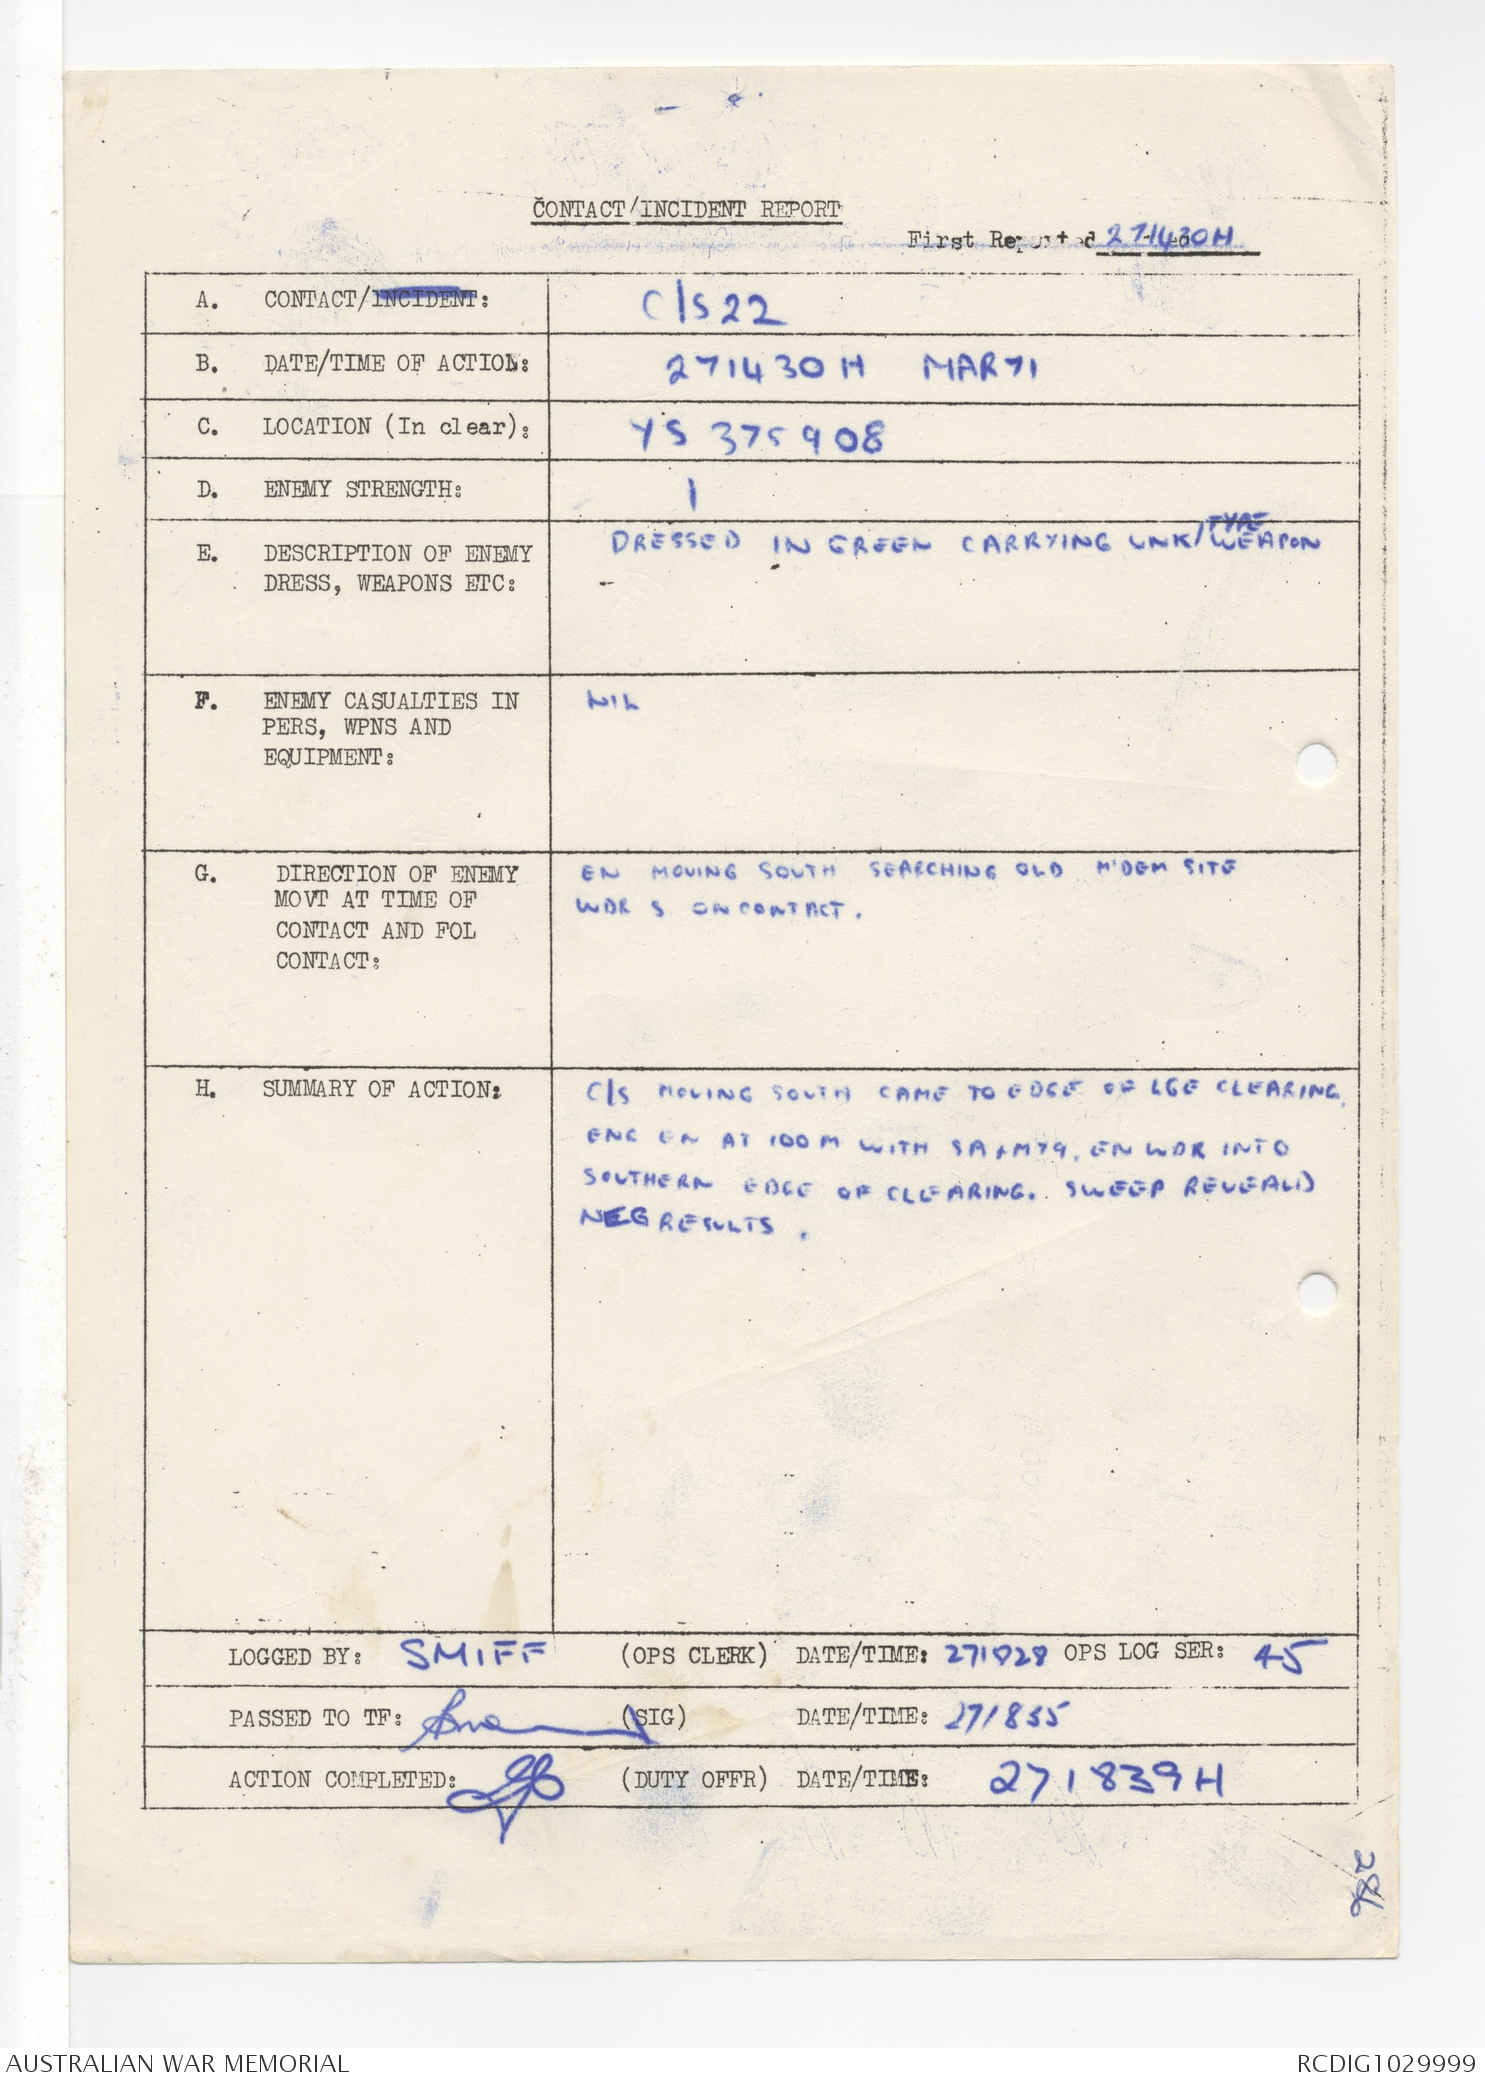 CONTACT/INCIDENT REPORT
First Reported 271430H
A. CONTACT/INCIDENT: C/S22
B. DATE/TIME OF ACTION: 271430H MAR71
C. LOCATION (In clear): YS 375908
D. ENEMY STRENGTH: 1
TYPE
E. DESCRIPTION OF ENEMY DRESSED IN GREEN CARRYING UNK/WEAPON
DRESS, WEAPONS ETC:
F. ENEMY CASUALTIES IN NIL
PERS, WPNS AND
EQUIPMENT:
G. DIRECTION OF ENEMY EN MOVING SOUTH SEARCHING OLD M'DEM SITE
MOVT AT TIME OF WDR S ON CONTACT.
CONTACT AND FOL
CONTACT:
H. SUMMARY OF ACTION: C/S MOVING SOUTH CAME TO EDGE OF LGE CLEARING,
ENG EN AT 100M WITH SA & M79. EN WDR INTO
SOUTHERN EDGE OF CLEARING. SWEEP REVEALD
NEG RESULTS.
LOGGED BY: SMIFF (OPS CLERK) DATE/TIME: OPS LOG SER: 45
PASSED TO TF: (SIG) DATE/TIME: 271835
ACTION COMPLETED: (DUTY OFFR) DATE/TIME: 271839H
286
AUSTRALIAN WAR MEMORIAL RCDIG1029999